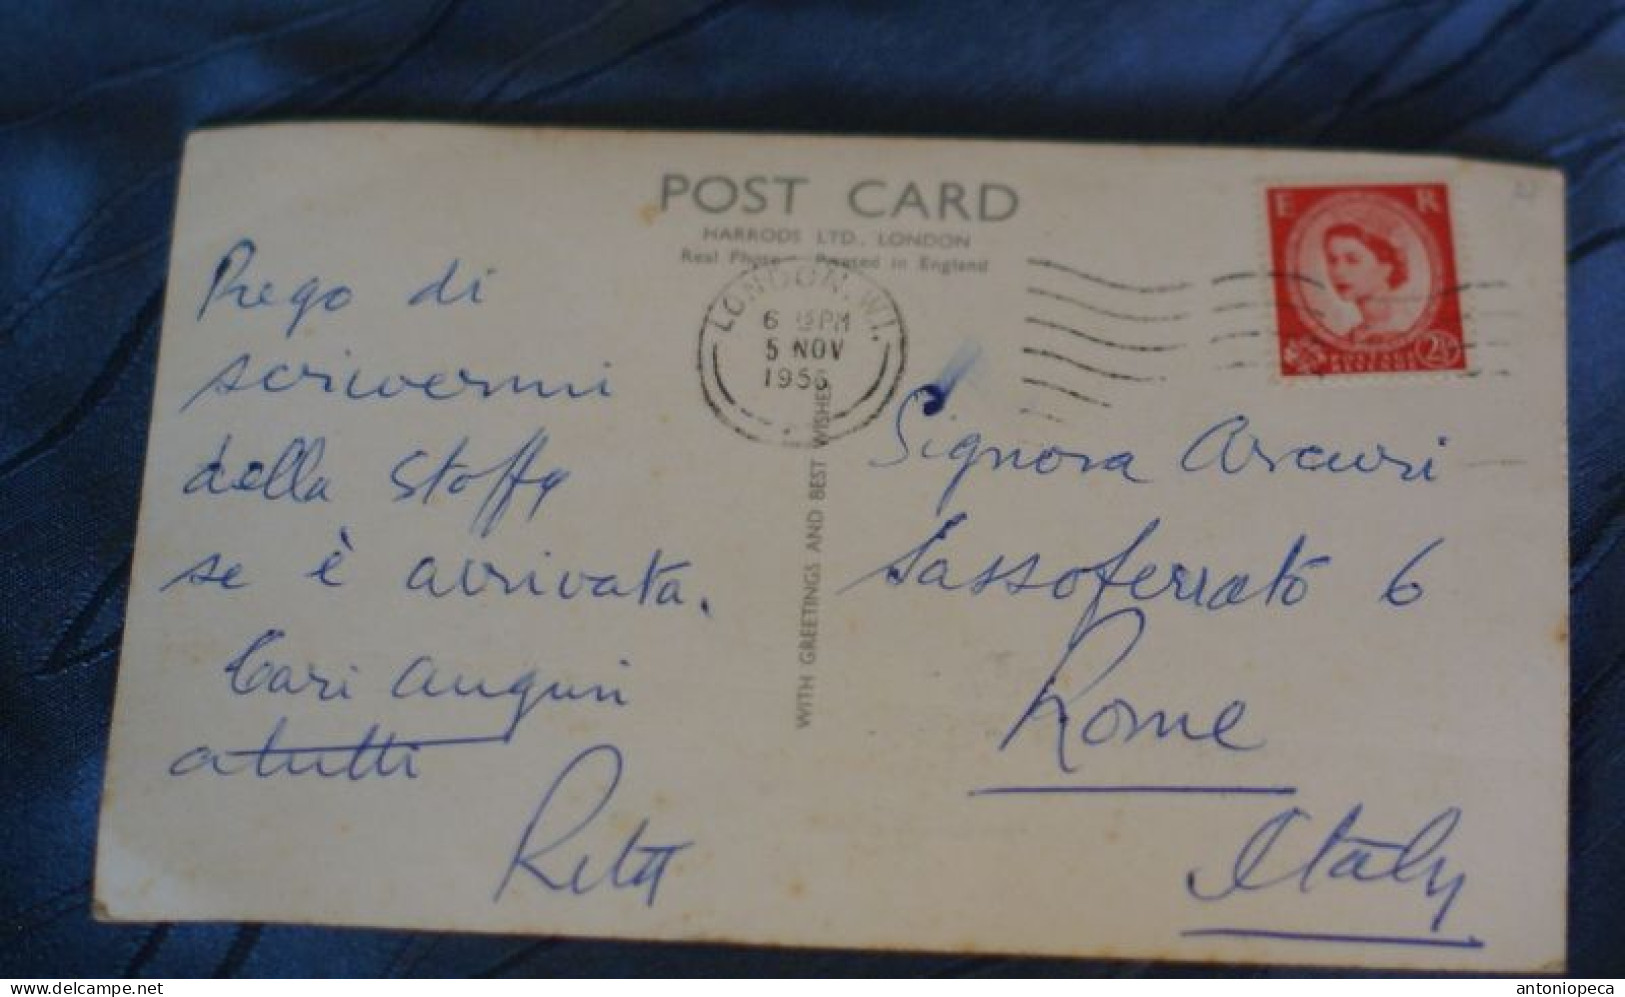 POST CARD
HARRODS LTD., LONDON
Real Photo Printed in England
LONDON. W.1.
6 15 PM
5 NOV
1956
E R
POSTAGE
REVENUE
2½
Prego di
scrivermi
della Stoffa
se è arrivata.
Cari auguri
a tutti
Rita
WITH GREETINGS AND BEST WISHES
Signora Arcuri
Sassoferrato 6
Rome
Italy
antoniopeca